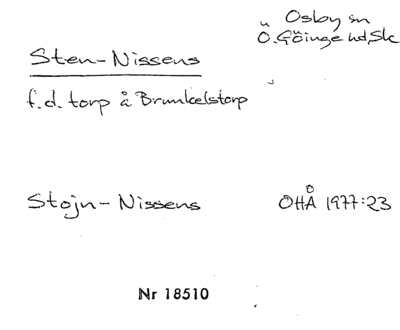 Osby sn
Ö. Göinge hd, Sk
Sten-Nissens
f.d. torp å Brunkelstorp
Stojn-Nissens
ÖHÅ 1977:23
Nr 18510